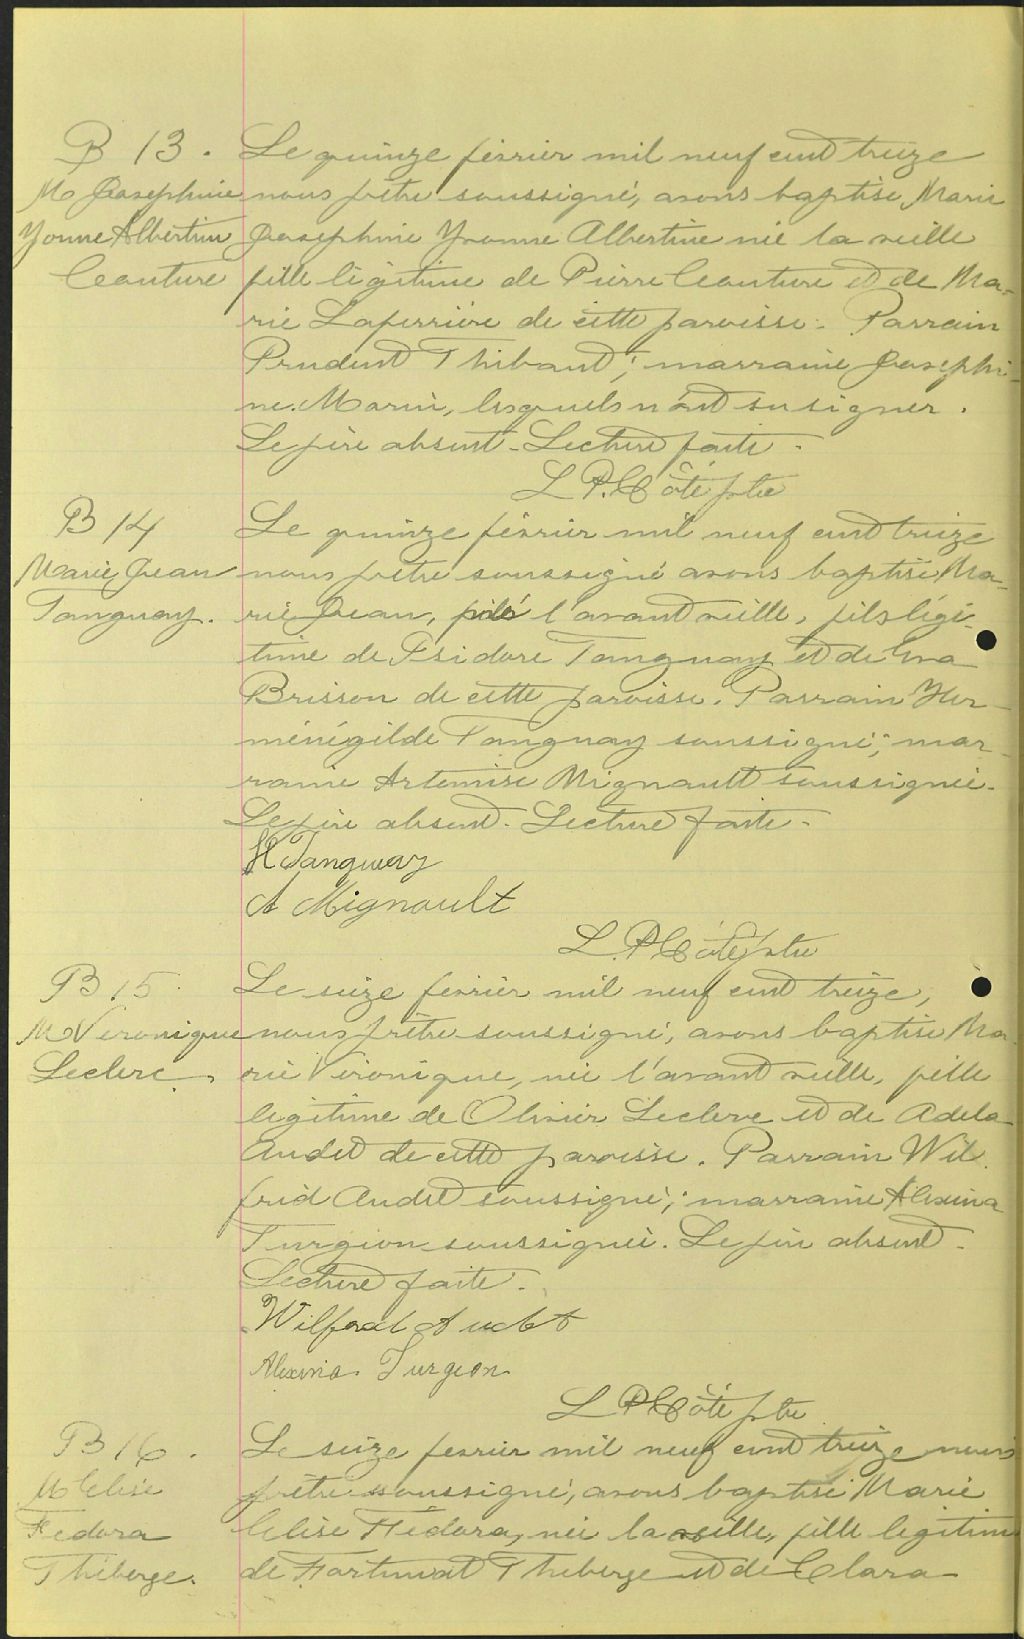 B 13.
M Josephine
Yvonne Albertine
Couture
Le quinze février mil neuf cent treize
nous prêtre soussigné, avons baptisé Marie
Josephine Yvonne Albertine née la veille
fille légitime de Pierre Couture et de Ma-
rie Laferrière de cette paroisse. Parrain
Prudent Thibaut; marraine Josephi-
ne Morin, lesquels n'ont su signer.
Le père absent. Lecture faite.
L P. Côté ptre
B 14
Marie Jean
Tanguay.
Le quinze février mil neuf cent treize
nous prêtre soussigné avons baptisé Ma-
rie Jean, né l'avant veille, fils légi-
time de Isidore Tanguay et de
Brisson de cette paroisse. Parrain Her-
ménégilde Tanguay soussigné; mar-
raine Artemise Mignault soussignée.
Le père absent. Lecture faite.
H Tanguay
A Mignault
L. P. Côté ptre
B 15
M Veronique
Leclerc.
Le seize février mil neuf cent treize,
nous prêtre soussigné, avons baptisé Ma-
rie Véronique, née l'avant veille, fille
légitime de Olivier Leclerc et de Adela
Audet de cette paroisse. Parrain Wil-
frid Audet soussigné; marraine Alexina
Turgeon soussignée. Le père absent.
Lecture faite.
Wilfrid Audet
Alexina Turgeon
L P Côté ptre
B 16.
M Célise
Fédora
Théberge.
Le seize février mil neuf cent treize nous
prêtre soussigné, avons baptisé Marie
Célise Fédora, née la veille, fille légitime
de Fortunat Théberge et de Clara